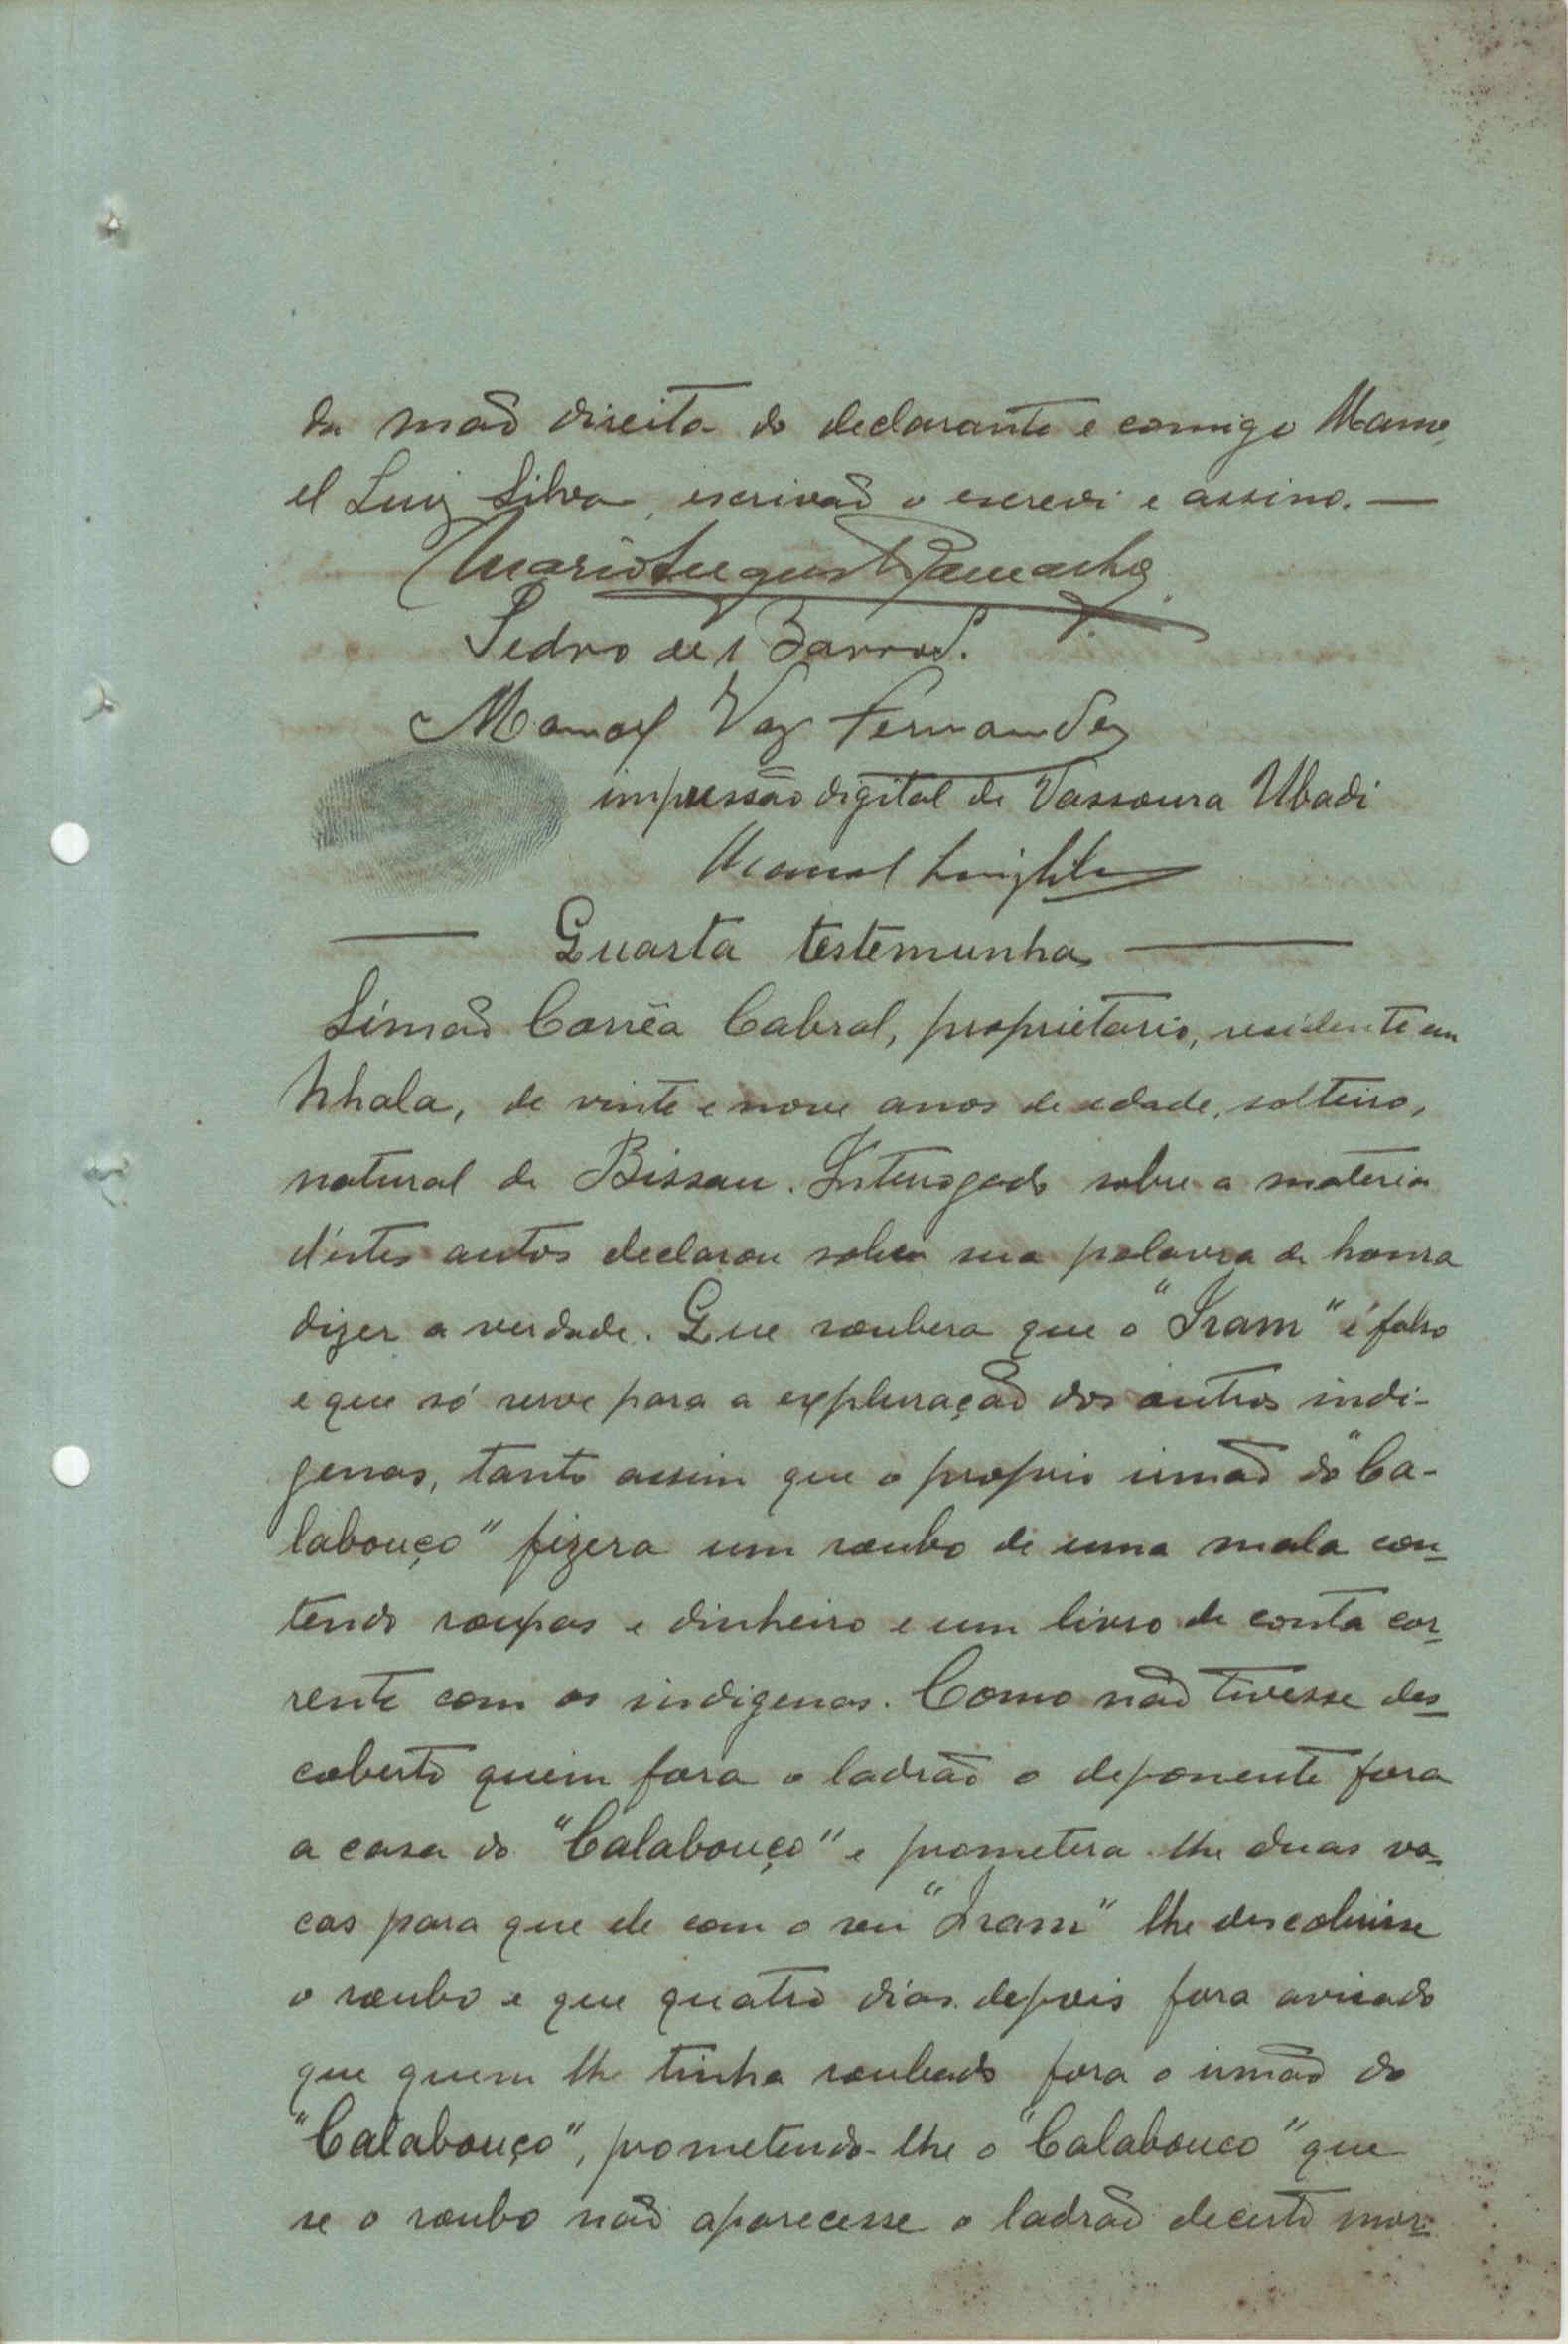 da mão direita do declarante e comigo Mano,
el Luiz Silva, escrivão o escrevi e assino. —
Mario Augusto Ramacho
Pedro de Barros.
Manoel Vaz Fernandes
impressão digital de Vassoura Ubadi
Manoel Luiz Silva
— Quarta testemunha —
Simão Corrêa Cabral, proprietario, residente em
Nhala, de vinte e nove anos de edade, solteiro,
natural de Bissau. Interrogado sobre a materia
d'estes autos declarou sobre sua palavra de honra
dizer a verdade. Que soubera que o "Iram" é falso
e que só serve para a exploração dos outros indi-
genas, tanto assim que o proprio irmão do "Ca-
labouço" fizera um roubo de uma mala con-
tendo roupas e dinheiro e um livro de conta cor-
rente com os indigenas. Como não tivesse des-
coberto quem fora o ladrão o deponente fora
a casa do "Calabouço" e prometera-lhe duas va-
cas para que ele com o seu "Iram" lhe descobrisse
o roubo e que quatro dias depois fora avisado
que quem lhe tinha roubado fora o irmão do
"Calabouço", prometendo-lhe o "Calabouco" que
se o roubo não aparecesse o ladrão decerto mor-